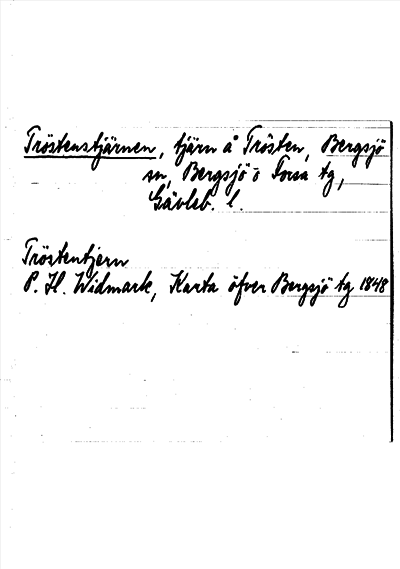 Tröstenstjärnen, tjärn å Trösten, Bergsjö
sn, Bergsjö o Forsa tg,
Gävleb. l.
Tröstentjern
P. H. Widmark, Karta öfver Bergsjö tg 1848